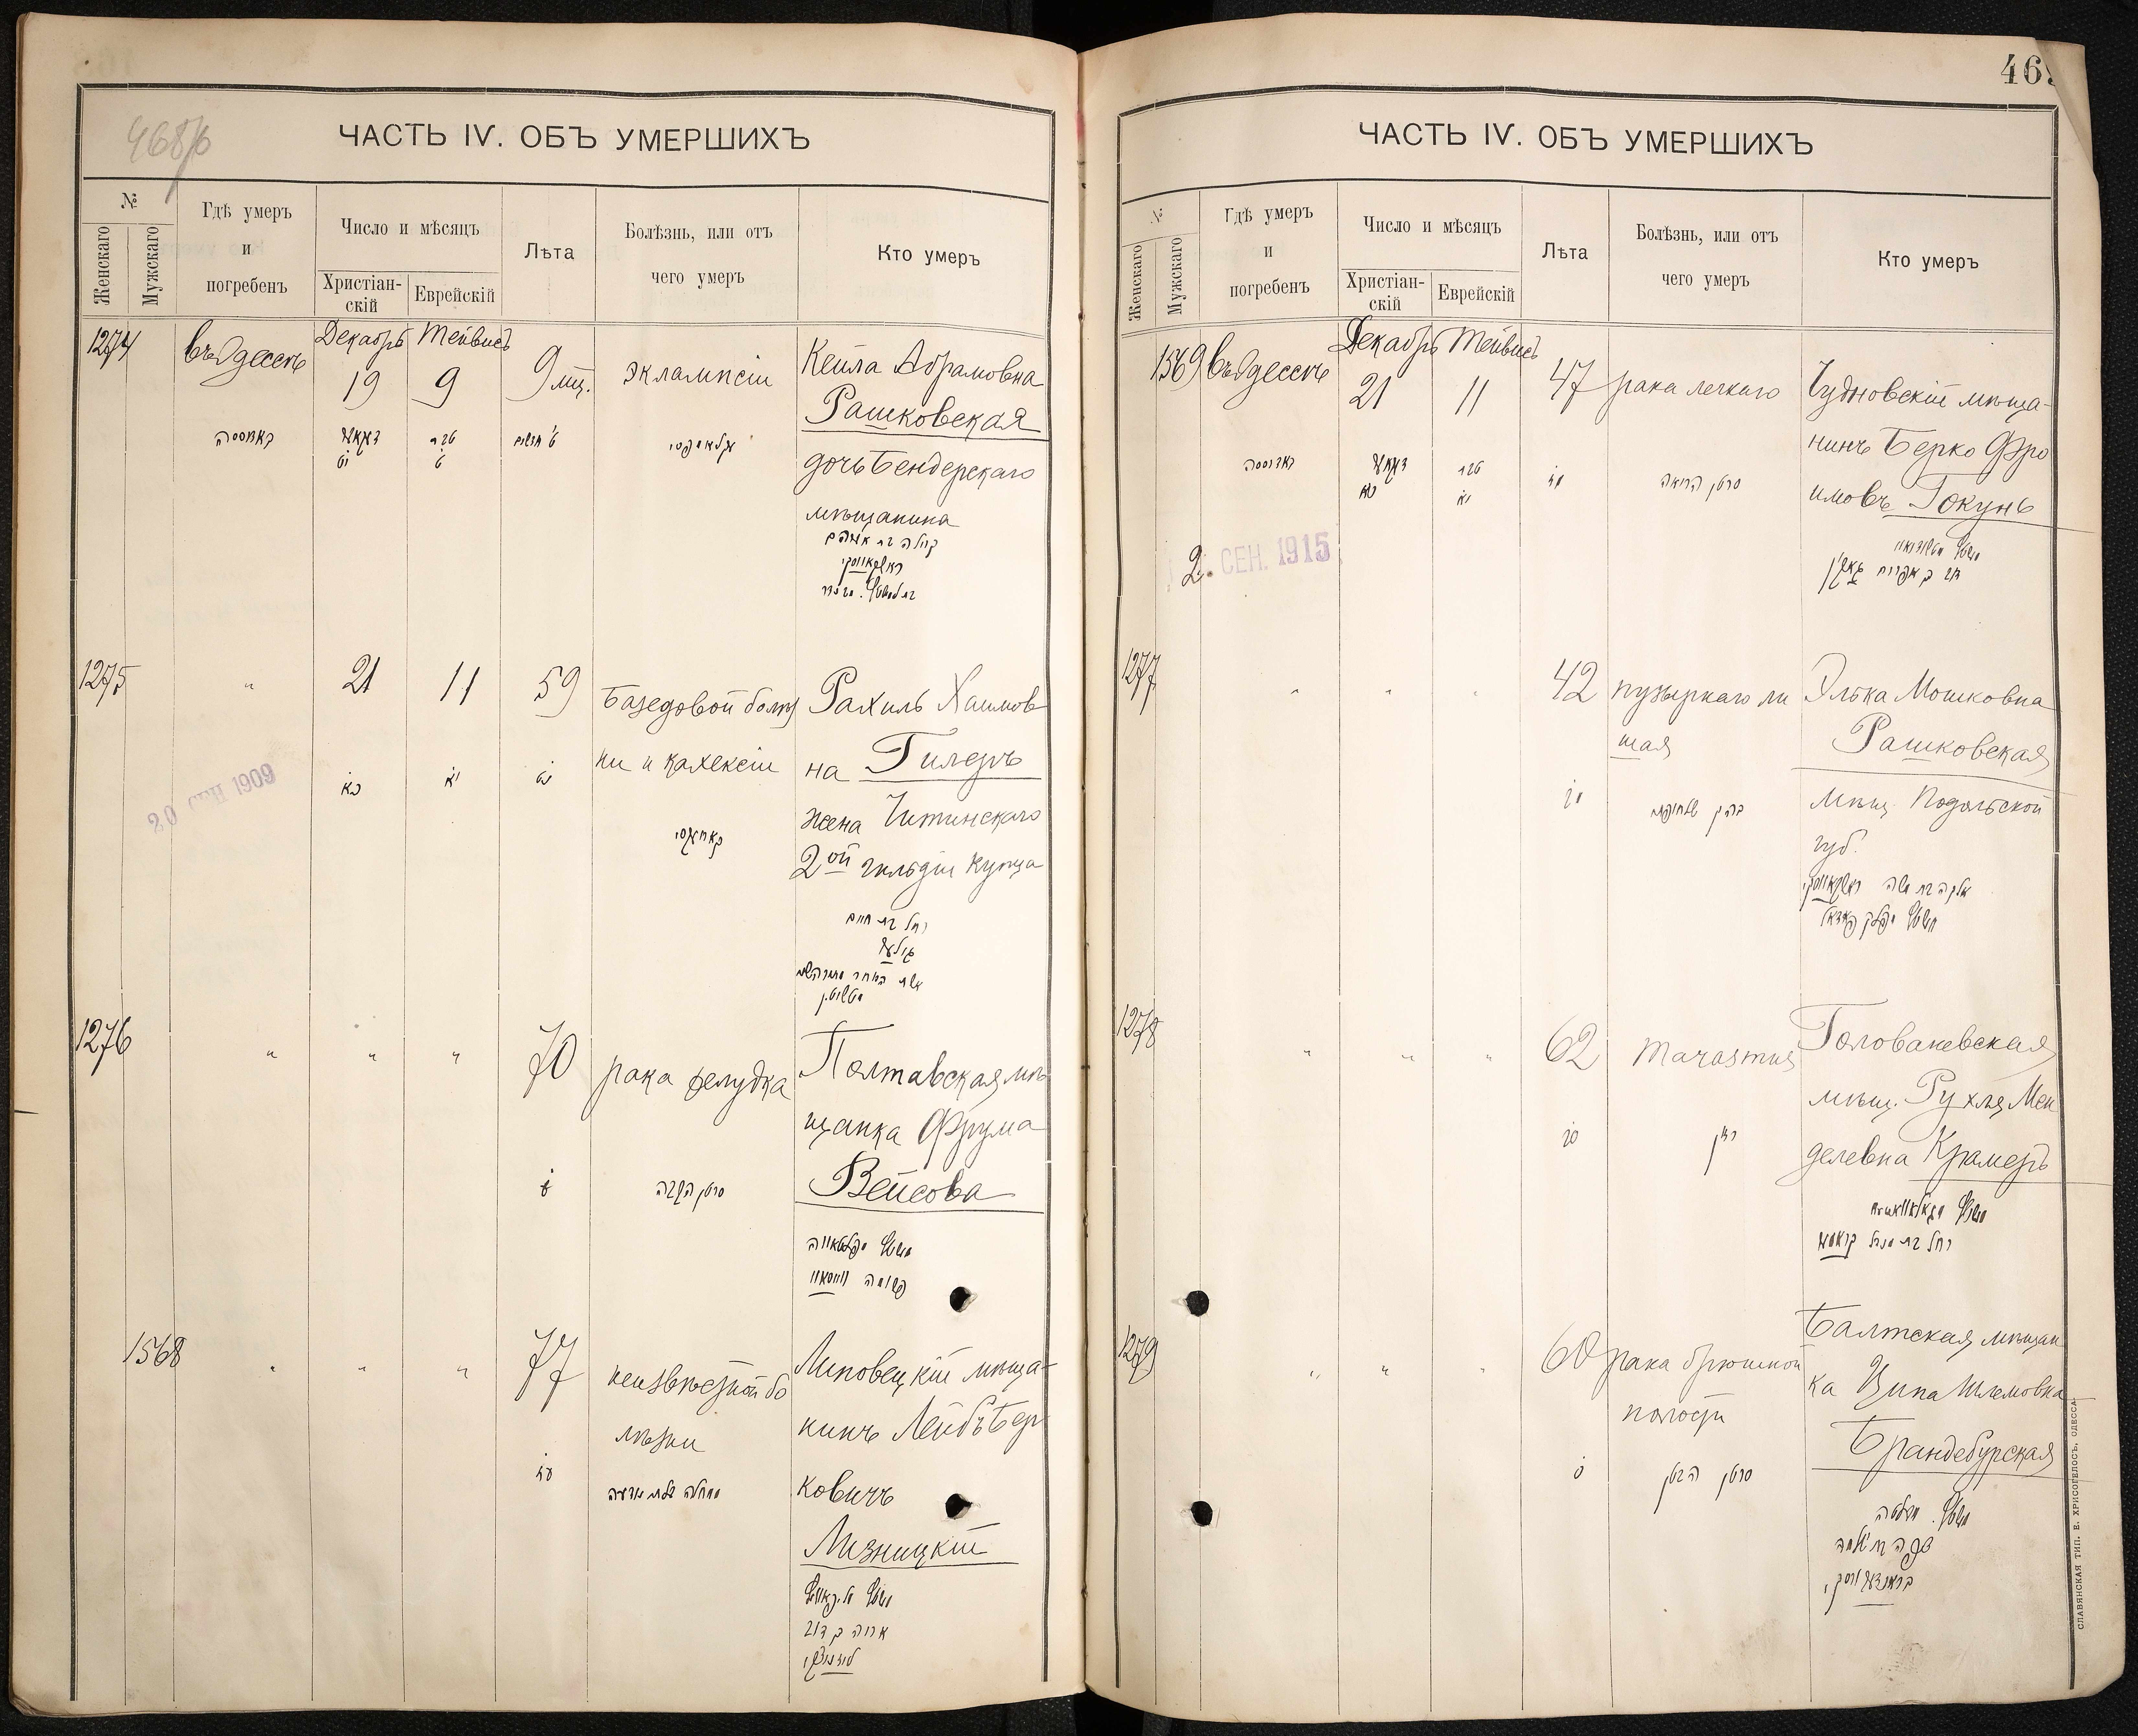 ЧАСТЬ IV. ОБЪ УМЕРШИХЪ
№
Женскаго
Мужскаго
Гдѣ умеръ
и
погребенъ
Число и мѣсяцъ
Христіан-
скій
Еврейскій
Лѣта
Болѣзнь, или отъ
чего умеръ
Кто умеръ
1274
въ Одессѣ
Декабрь
19
Тейвисъ
9
9 мц.
эклампсіи
Кейла Абрамовна
Рашковская
дочь Бендерскаго
мѣщанина
קילה בת אברהם
ראשקאווסקי
1275
"
21
11
59
Базедовой болѣз
ни и кахексіи
Рахиль Хаимов
на Гилеръ
жена Читинскаго
2ой гильдіи купца
כא
יא
נט
רחל בת חיים
20 СЕН 1909
1276
"
"
"
70
рака желудка
Полтавская мѣ
щанка Фрума
Вейсова
ע
סרטן הקבה
1568
"
"
"
77
неизвѣстной бо
лѣзни
Липовецкій мѣща-
нинъ Лейбъ Бер
ковичъ
Лизницкій
עז
אריה ב דוב
469
ЧАСТЬ IV. ОБЪ УМЕРШИХЪ
№
Женскаго
Мужскаго
Гдѣ умеръ
и
погребенъ
Число и мѣсяцъ
Христіан-
скій
Еврейскій
Лѣта
Болѣзнь, или отъ
чего умеръ
Кто умеръ
1569
въ Одессѣ
Декабрь
21
Тейвисъ
11
47
рака легкаго
Чудновскій мѣща-
нинъ Берко Фро
имовъ Гокунь
כא
יא
מז
סרטן הריאה
2. СЕН. 1915
1277
"
"
"
42
пузырнаго ли
шая
Элька Мошковна
Рашковская
мѣщ. Подольской
губ.
אלקה בת משה ראשקאווסקי
1278
"
"
"
62
marasmus
Голованевская
мѣщ. Рухля Мен
делевна Крамеръ
סב
רחל בת מנדל קראמער
1279
"
"
"
60
рака брюшной
полости
Балтская мѣщан
ка Ципа Шлемовна
Брандебурская
ס
סרטן הבטן
СЛАВЯНСКАЯ ТИП. Е. ХРИСОГЕЛОСЪ, ОДЕССА